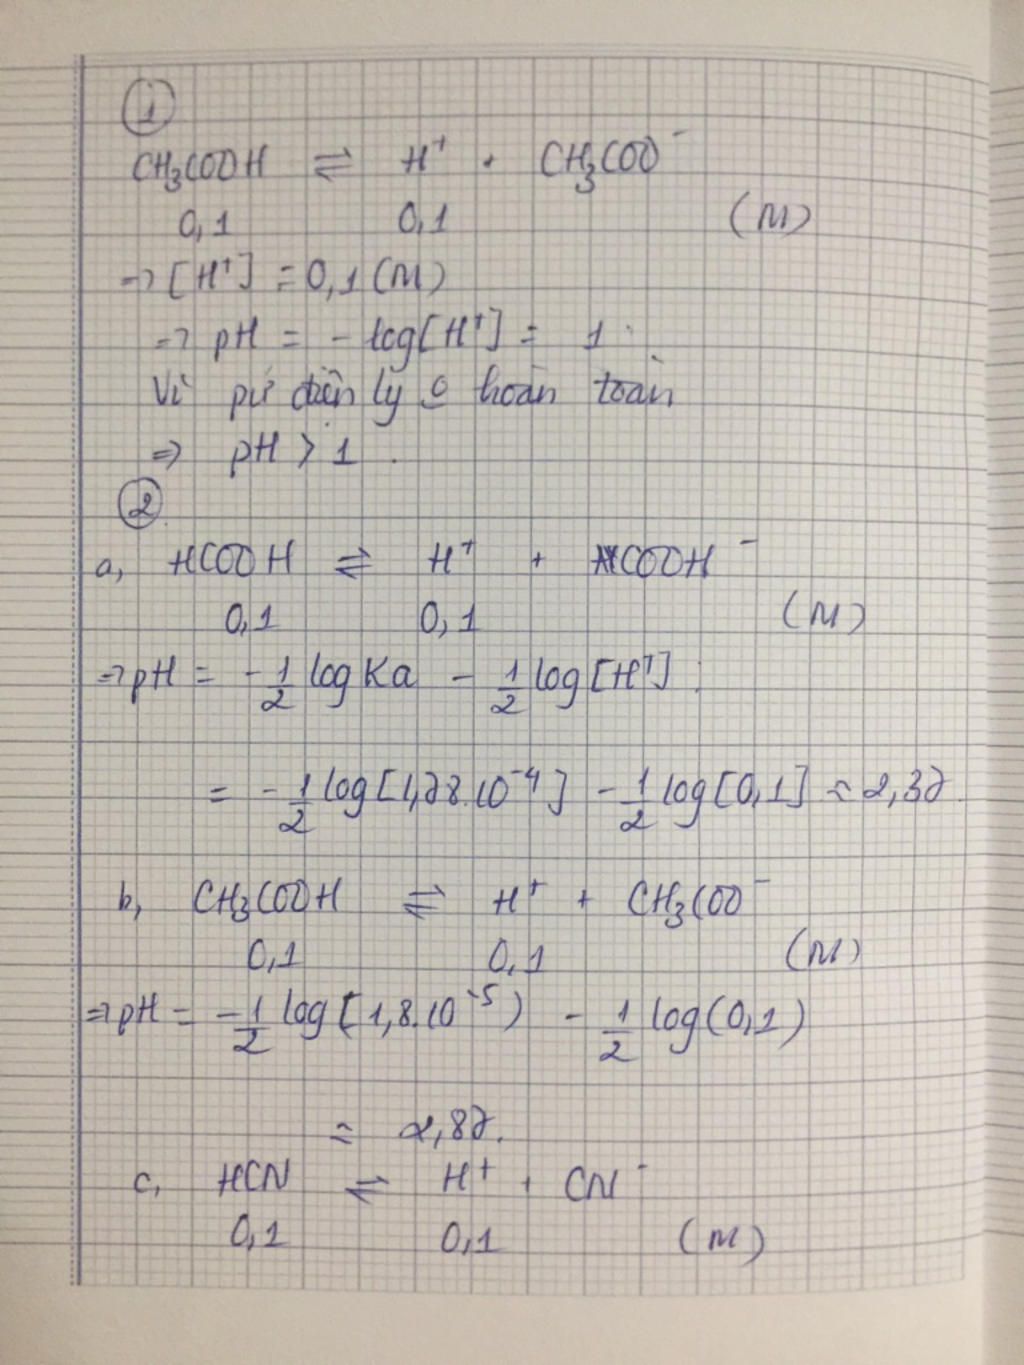 1
CH₃COOH ⇌ H⁺ + CH₃COO⁻
0,1 0,1 (M)
→ [H⁺] = 0,1 (M)
→ pH = -log[H⁺] = 1.
Vì pứ điện ly o hoàn toàn
⇒ pH > 1.
2
a, HCOOH ⇌ H⁺ + COOH⁻
0,1 0,1 (M)
→ pH = -1/2 log Ka - 1/2 log [H⁺]
= -1/2 log [1,78.10⁻⁴] - 1/2 log [0,1] = 2,37
b, CH₃COOH ⇌ H⁺ + CH₃COO⁻
0,1 0,1 (M)
→ pH = -1/2 log [1,8.10⁻⁵) - 1/2 log (0,1)
= 2,87.
c, HCN ⇌ H⁺ + CN⁻
0,1 0,1 (M)